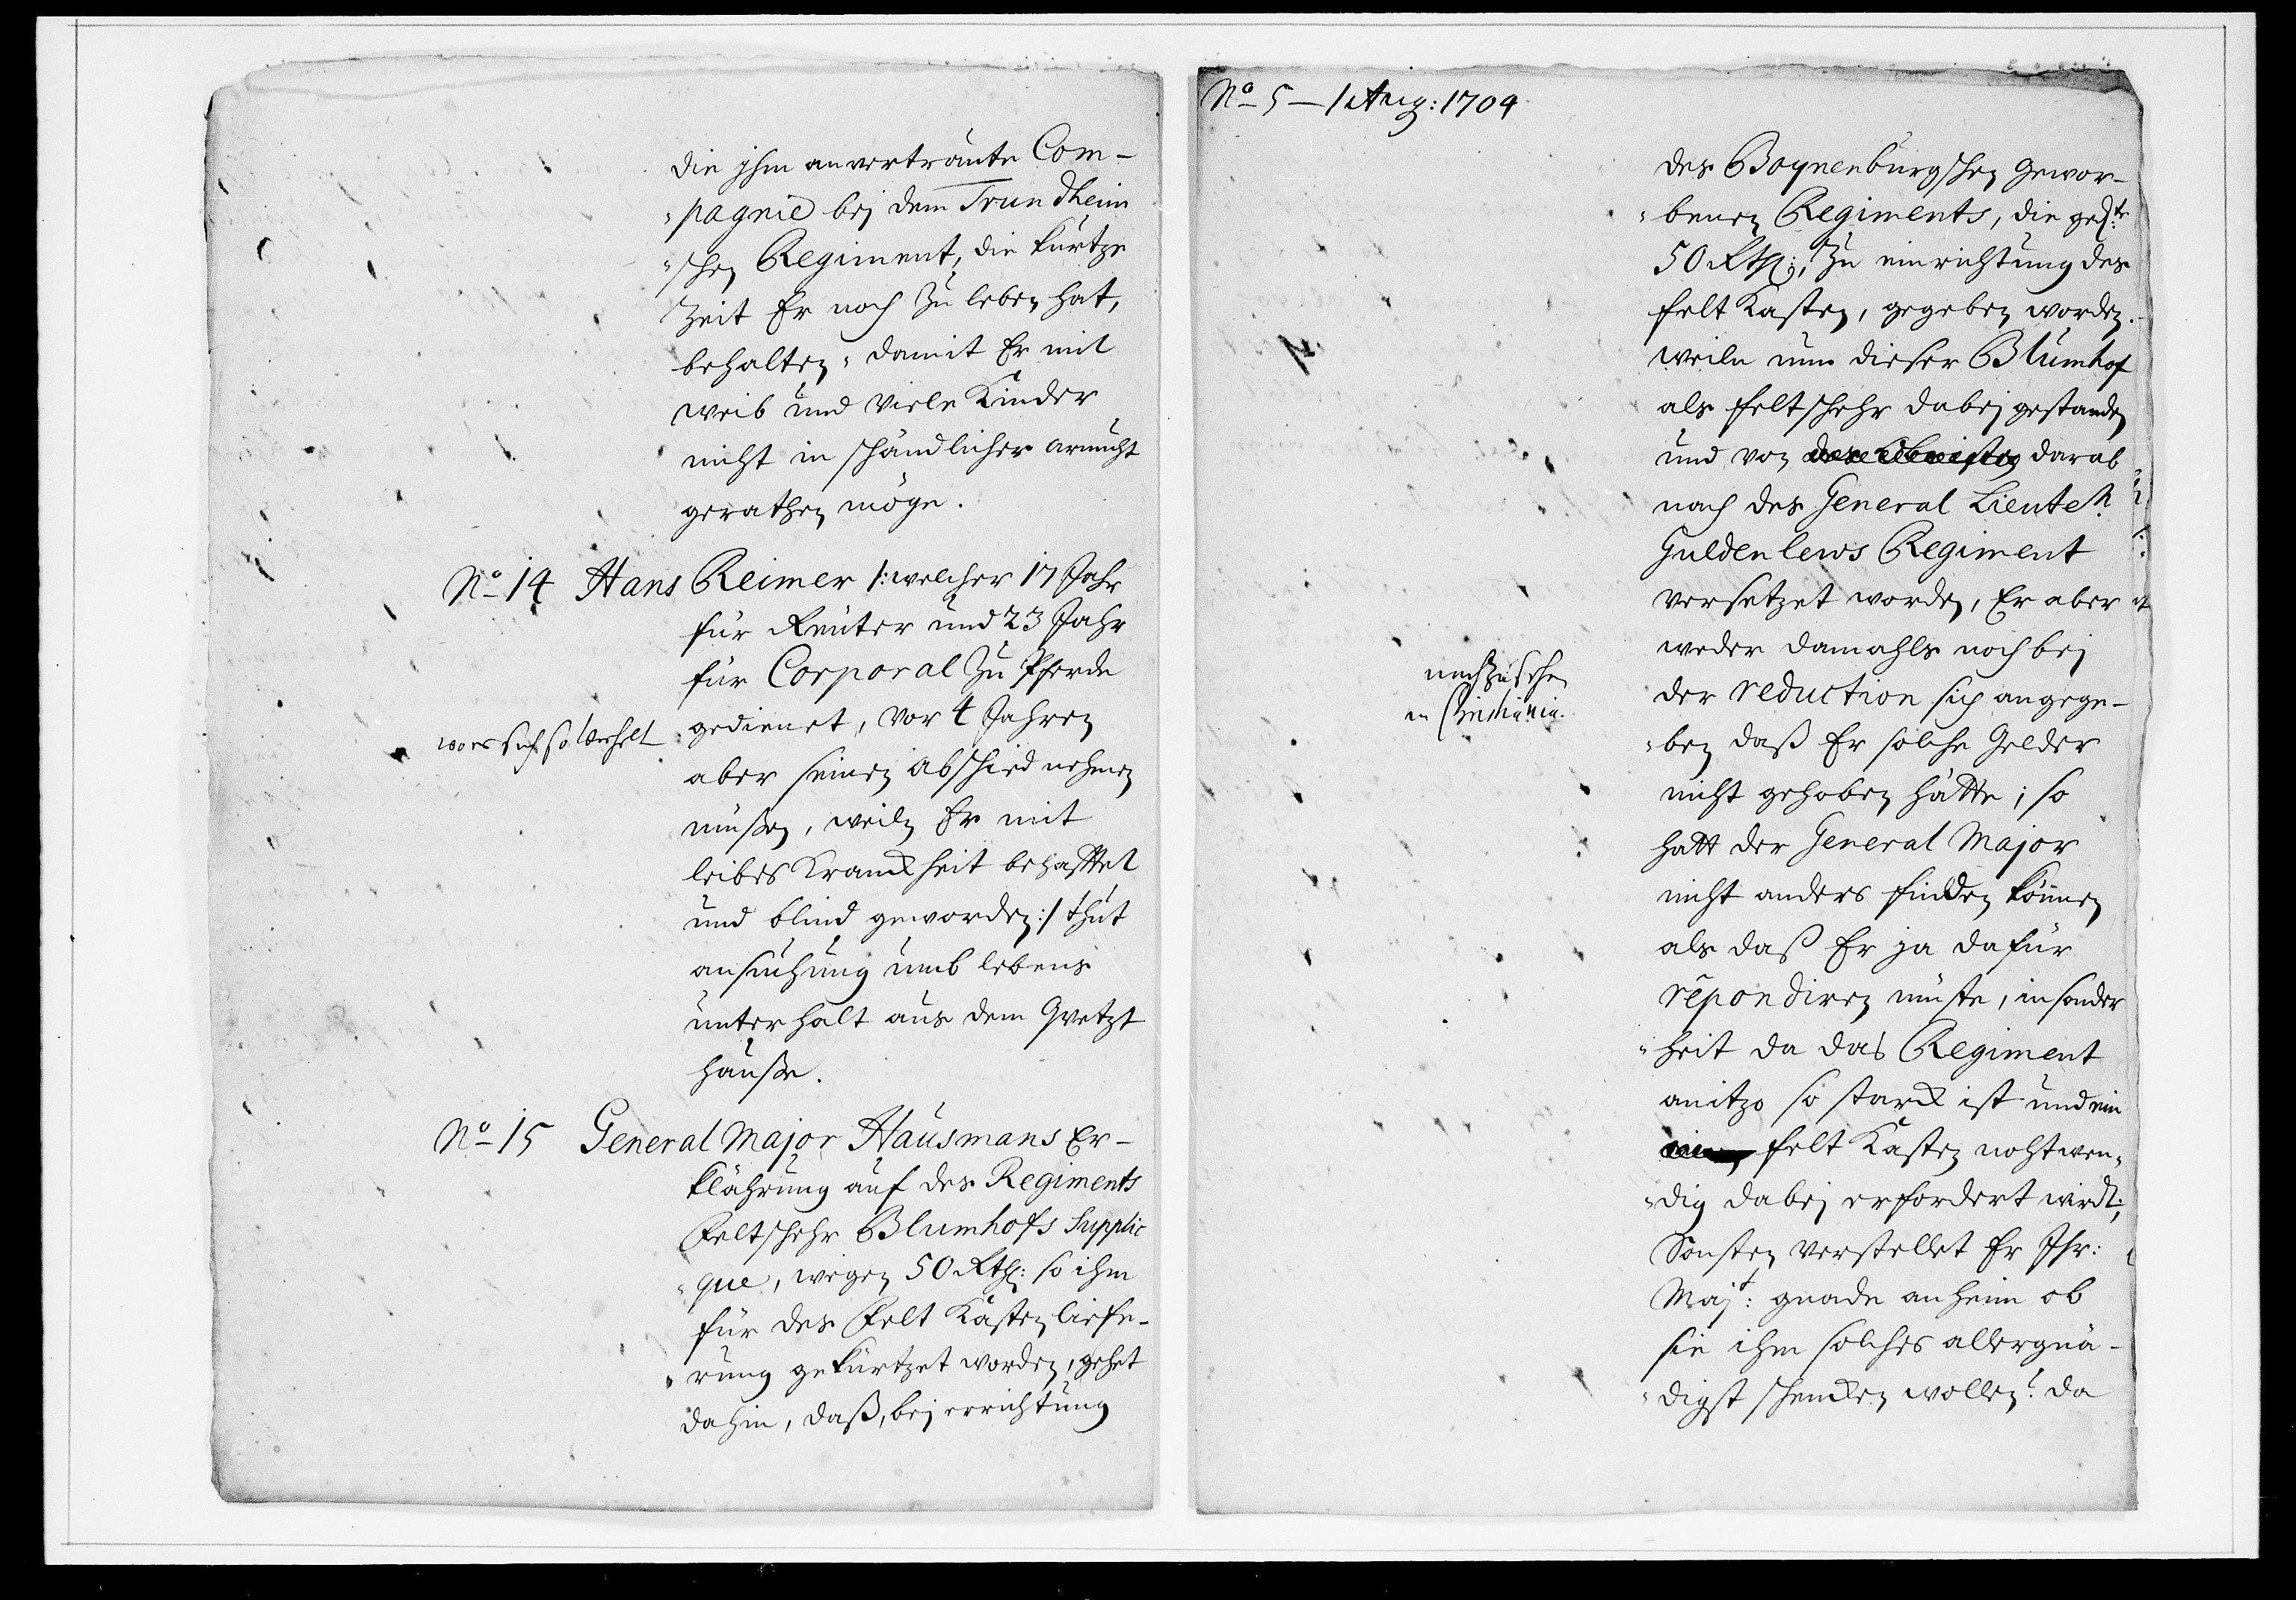 die jhm anvertraute Com-
pagnie bej dem Trundheim
schen Regiment, die kurtze
Zeit Er noch zu leben hat,
behalten, damit Er mit
weib und viele Kinder
nicht in schändlicher armuht
gerathen möge.
No 14 Hans Reimer /: welcher 17 Jahr
für Reuter und 23 Jahr
für Corporal zu Pferde
gedienet, vor 4 Jahren
wo es sich so verhelt
aber seinen abschied nehmen
müßen, weiln Er mit
leibes Kranckheit behafftet
und blind geworden :/ thut
ansuchung umb lebens
unterhalt aus dem Qvetzt
hauße.
No 15 General Major Hausmans Er-
klährung auf des Regiments
Feltschehr Blumhofs Supplic
que, wegen 50 Rthl: so ihm
für des Felt Kasten liefe-
rung gekürtzet worden, gehet
dahin, daß, bej errichtung
No 5 - 1 Aug: 1704
des Boynenburgschen Gewor-
benen Regiments, die gedte
50 Rthl:, zu einrichtung des
felt Kasten, gegeben worden.
weiln nun dieser Blumhof
als feltschehr dabej gestanden
und von darab
nach des General Lieuten.
Guldenlews Regiment
versetzet worden, Er aber
weder damahls noch bej
nachzusehen
in Christiania.
der reduction sich angege-
ben daß Er solche Gelder
nicht gehoben hätte; so
hatt der General Major
nicht anders finden können
als daß Er ja dafür
repondiren müste, insonder
heit da das Regiment
anitzo so starck ist und ein
felt Kasten nohtwen-
dig dabej erfordert wirdt;
Sonsten verstellet Er Ihr:
Majt: gnade anheim ob
sie ihm solches allergnä-
digst schencken wollen? da